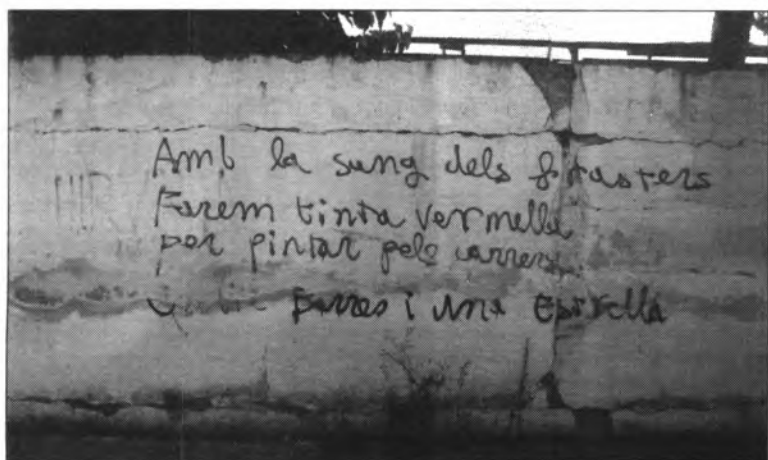 Amb la sang dels forasters
Farem tinta vermella
per pintar pels carrers
barres i una Estrella